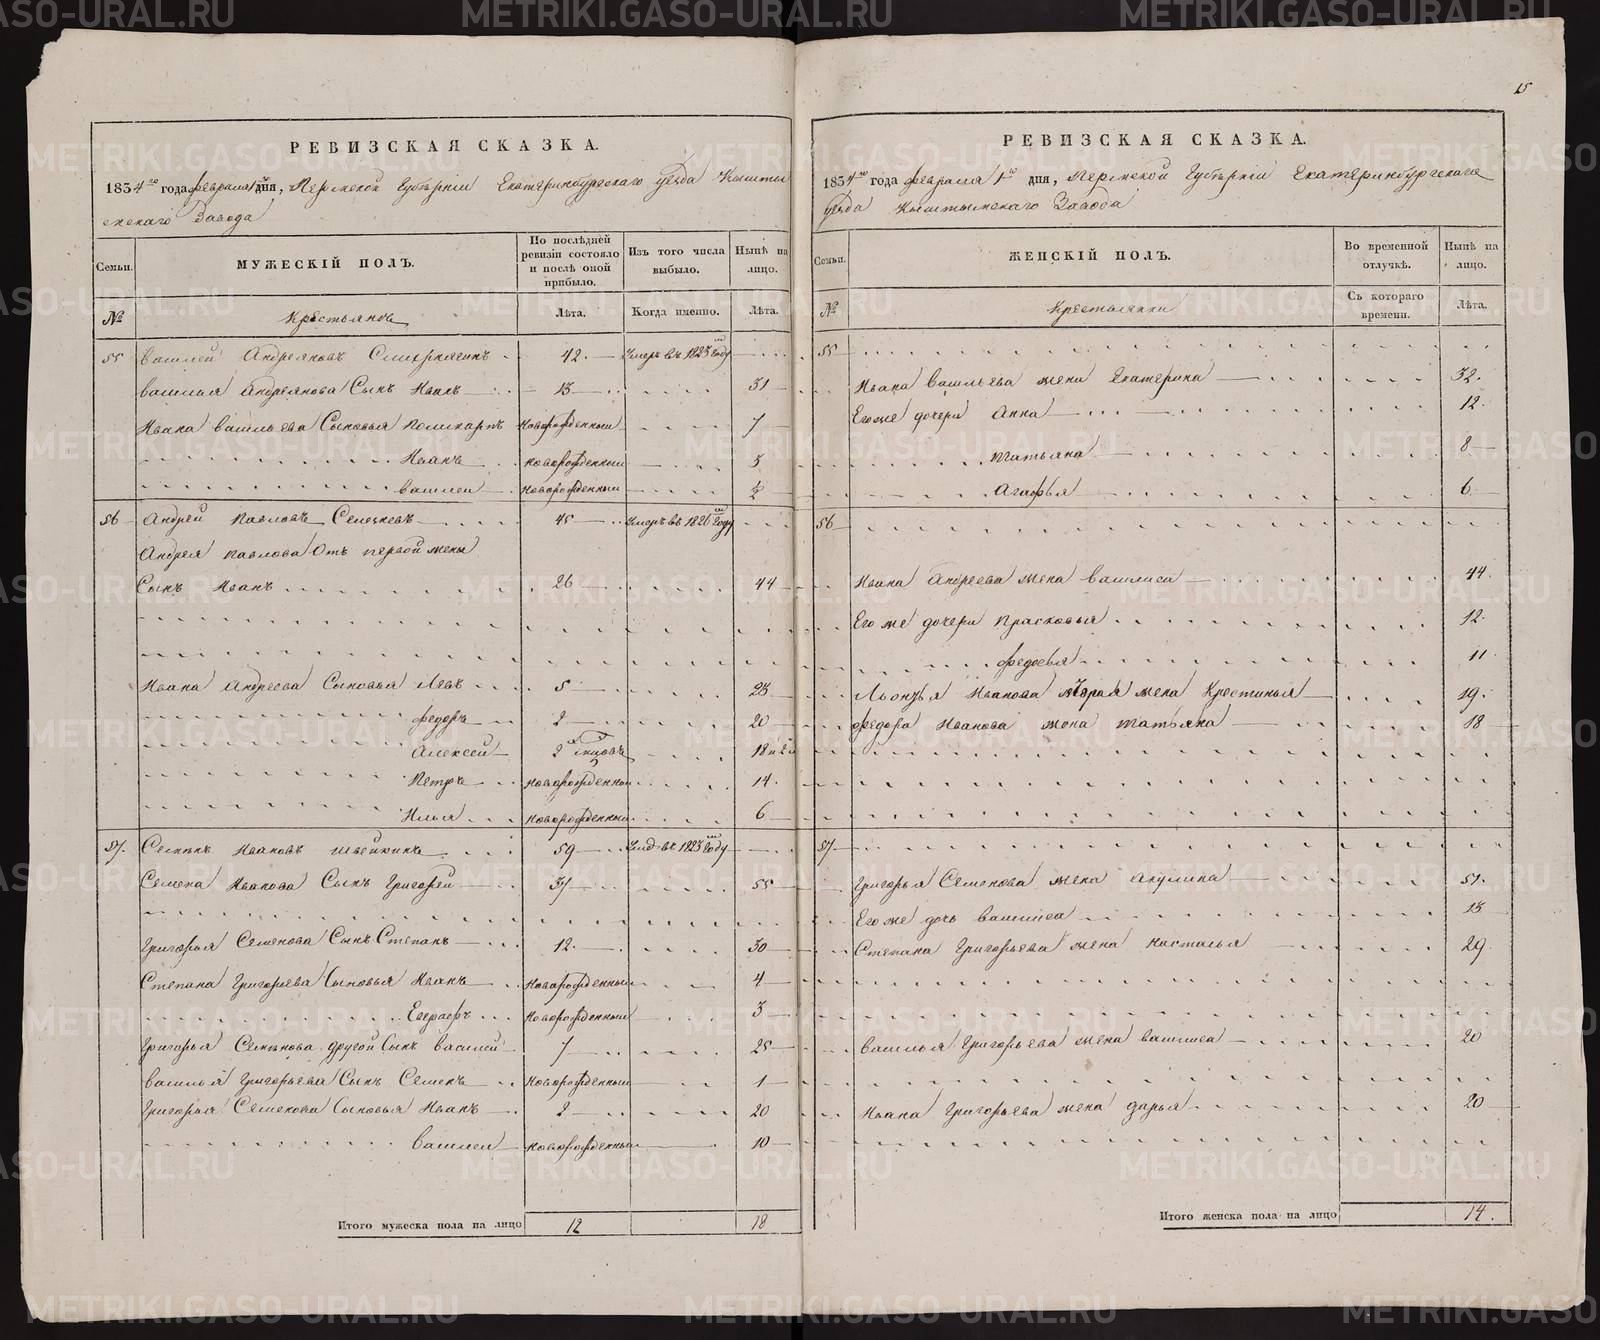 15
РЕВИЗСКАЯ СКАЗКА.
1834го года февраля 1го дня, Пермской Губерніи Екатеринбургскаго уезда Кышты
мскаго Завода
Семьи.
МУЖЕСКІЙ ПОЛЪ.
По послѣдней ревизіи состояло и послѣ оной прибыло.
Изъ того числа выбыло.
Нынѣ на лицо.
№
Крестьянъ
Лѣта.
Когда именно.
Лѣта.
55 Василей Андреяновъ 42. Умеръ въ 1823м Году
Василья Андреянова Сынъ Иванъ 13 31
Ивана Васильева Сыновья Поликарпъ Новорожденный 7
Иванъ новорожденный 3
Василей Новорожденный ½
56 Андрей Павловъ 45 Умеръ въ 1826м Году
Андрея Павлова Отъ первой жены
Сынъ Иванъ 26 44
Ивана Андреева Сыновья Левъ 5 23
Федоръ 2 20
Алексей 2 18
Петръ Новорожденный 14
Илья Новорожденный 6
57. Семенъ Ивановъ Швейкинъ 59 въ 1823м Году
Семена Иванова Сынъ Григорей 37 55
Григорья Семенова Сынъ Степанъ 12. 30
Степана Григорьева Сыновья Иванъ Новорожденный 4
Евграфъ Новорожденный 3
Григорья Семенова другой Сынъ Василей 7 25
Василья Григорьева Сынъ Семенъ Новорожденный 1
Григорья Семенова Сыновья Иванъ 2 20
Василей Новорожденный 10
Итого мужеска пола на лицо 12 18
РЕВИЗСКАЯ СКАЗКА.
1834го года февраля 1го дня, Пермской Губерніи Екатеринбургскаго
уезда Кыштымскаго Завода
Семьи.
ЖЕНСКІЙ ПОЛЪ.
Во временной отлучкѣ.
Нынѣ на лицо.
№
Крестьянки
Съ котораго времени.
Лѣта.
55
Ивана Васильева жена Екатерина 32.
Его же дочери Анна 12.
Татьяна 8
Агафья 6
56
Ивана Андреева жена Василиса 44.
Его же дочери Прасковья 12.
Федосья 11
Иванова жена Крестинья 19.
Федора Иванова жена Татьяна 18
57
Григорья Семенова жена Акулина 51.
Его же дочь Василиса 13
Степана Григорьева жена Настасья 29.
Василья Григорьева жена Василиса 20
Ивана Григорьева жена Дарья 20
Итого женска пола на лицо 14.
METRIKI.GASO-URAL.RU